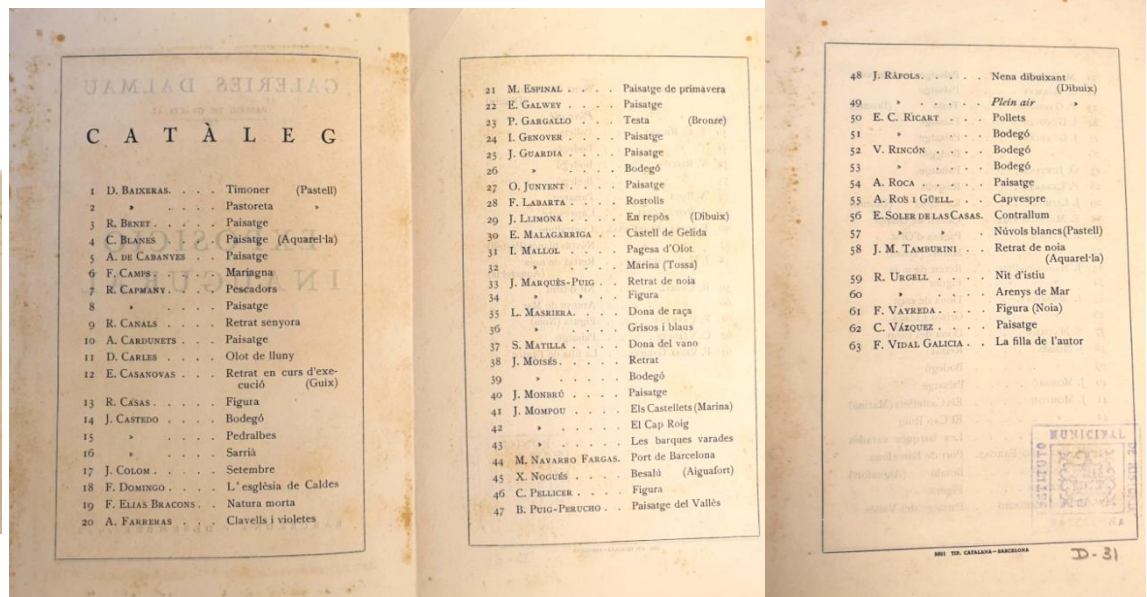 CATÀLEG
1 D. BAIXERAS. . . . Timoner (Pastell)
2 » . . . . Pastoreta »
3 R. BENET. . . . . Paisatge
4 C. BLANES . . . . Paisatge (Aquarel·la)
5 A. DE CABANYES . . Paisatge
6 F. CAMPS . . . . . Mariagna
7 R. CAPMANY. . . . Pescadors
8 » . . . . Paisatge
9 R. CANALS . . . . Retrat senyora
10 A. CARDUNETS . . . Paisatge
11 D. CARLES . . . . Olot de lluny
12 E. CASANOVAS . . . Retrat en curs d'exe-
cució (Guix)
13 R. CASAS. . . . . Figura
14 J. CASTEDO . . . . Bodegó
15 » . . . . Pedralbes
16 » . . . . Sarrià
17 J. COLOM . . . . . Setembre
18 F. DOMINGO . . . . L'esglèsia de Caldes
19 F. ELIAS BRACONS. . Natura morta
20 A. FARRERAS . . . Clavells i violetes
21 M. ESPINAL . . . . Paisatge de primavera
22 E. GALWEY . . . . Paisatge
23 P. GARGALLO . . . Testa (Bronze)
24 I. GENOVER . . . . Paisatge
25 J. GUARDIA . . . . Paisatge
26 » . . . . Bodegó
27 O. JUNYENT . . . . Paisatge
28 F. LABARTA . . . . Rostolls
29 J. LLIMONA . . . . En repòs (Dibuix)
30 E. MALAGARRIGA . . Castell de Gelida
31 I. MALLOL . . . . Pagesa d'Olot
32 » . . . . Marina (Tossa)
33 J. MARQUÈS-PUIG . . Retrat de noia
34 » » . . Figura
35 L. MASRIERA. . . . Dona de raça
36 » . . . . Grisos i blaus
37 S. MATILLA . . . . Dona del vano
38 J. MOISÉS. . . . . Retrat
39 » . . . . . Bodegó
40 J. MONBRÚ . . . . Paisatge
41 J. MOMPOU . . . . Els Castellets (Marina)
42 » . . . . El Cap Roig
43 » . . . . Les barques varades
44 M. NAVARRO FARGAS. Port de Barcelona
45 X. NOGUÉS . . . . Besalú (Aiguafort)
46 C. PELLICER . . . . Figura
47 B. PUIG-PERUCHO . . Paisatge del Vallès
48 J. RÀFOLS. . . . . Nena dibuixant
(Dibuix)
49 » . . . . . Plein air »
50 E. C. RICART . . . Pollets
51 » . . . Bodegó
52 V. RINCÓN . . . . Bodegó
53 » . . . . Bodegó
54 A. ROCA . . . . . Paisatge
55 A. ROS I GÜELL. . . Capvespre
56 E. SOLER DE LAS CASAS. Contrallum
57 » » Núvols blancs (Pastell)
58 J. M. TAMBURINI . . Retrat de noia
(Aquarel·la)
59 R. URGELL . . . . Nit d'istiu
60 » . . . . Arenys de Mar
61 F. VAYREDA. . . . Figura (Noia)
62 C. VÁZQUEZ . . . . Paisatge
63 F. VIDAL GALICIA . . La filla de l'autor
INSTITUTO MUNICIPAL
TIP. CATALANA - BARCELONA
D-31